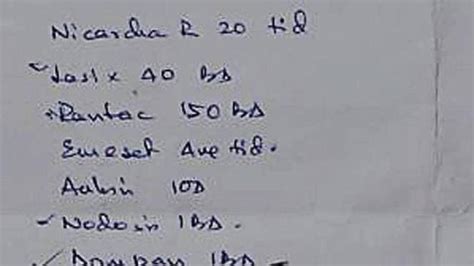 Nicardia R 20 tid
✓ Lasix 40 BD
Rantac 150 BD
Emeset tid.
10D
✓ Nodosis 1BD.
✓ 1BD